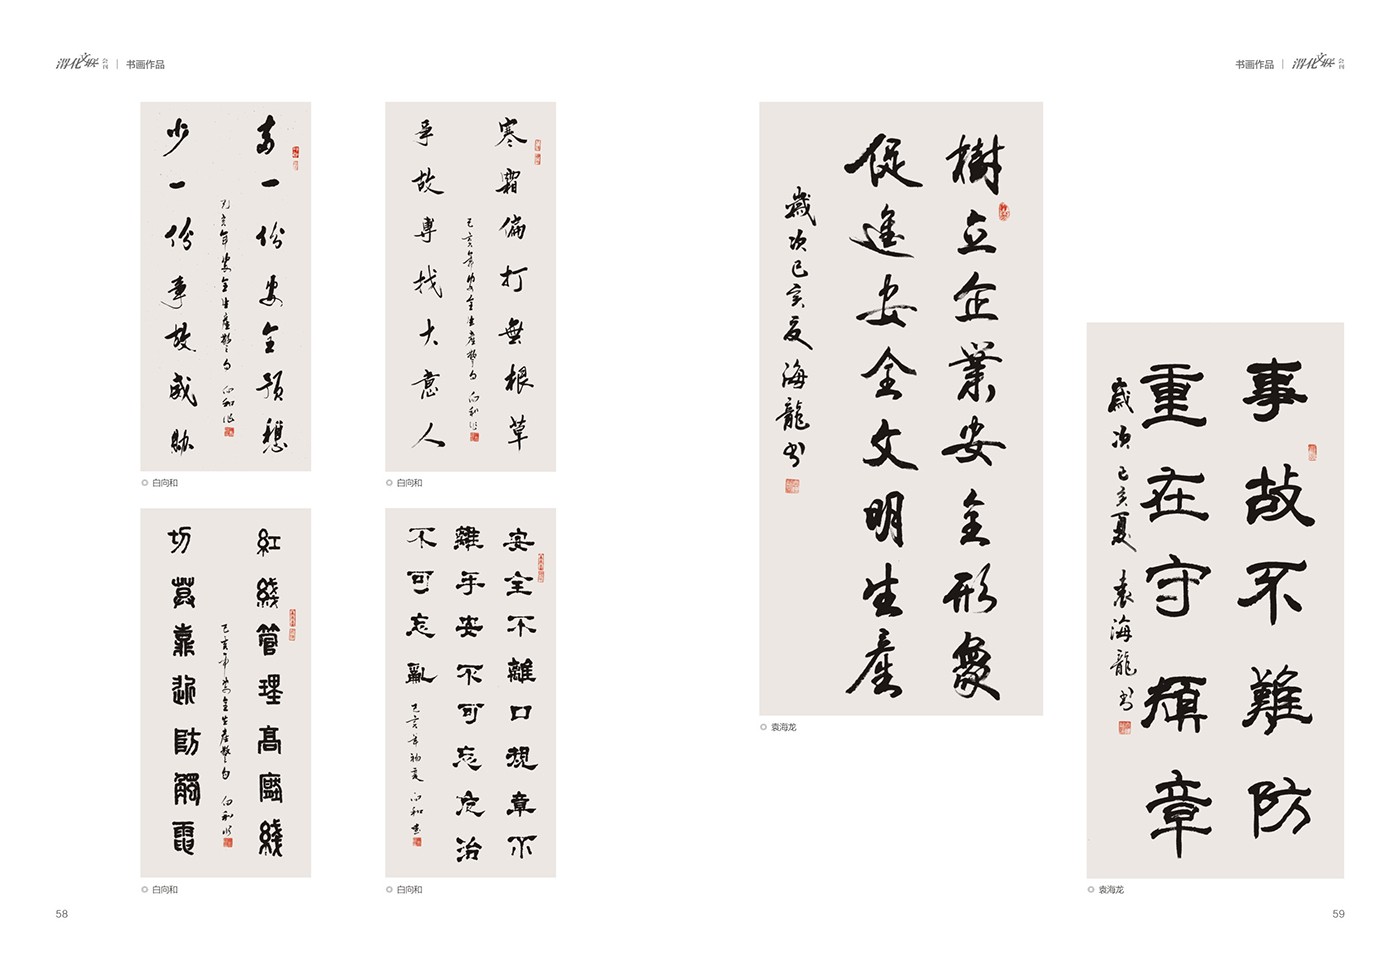 渭化文联 会刊 | 书画作品
多一份安全预想
少一份事故威胁
己亥年安全生產警句 向和书
白向和
寒霜偏打無根草
事故專找大意人
己亥年安全生產警句 向和书
白向和
紅綫管理高壓綫
切莫靠近防觸電
己亥年安全生產警句 向和书
白向和
安全不離口規章不
離手安不可忘危治
不可忘亂
己亥年初夏 向和书
白向和
58
书画作品 | 渭化文联 会刊
樹立企業安全形象
促進安全文明生產
歲次己亥夏 海龍书
袁海龙
事故不難防
重在守規章
歲次己亥夏 袁海龍书
袁海龙
59